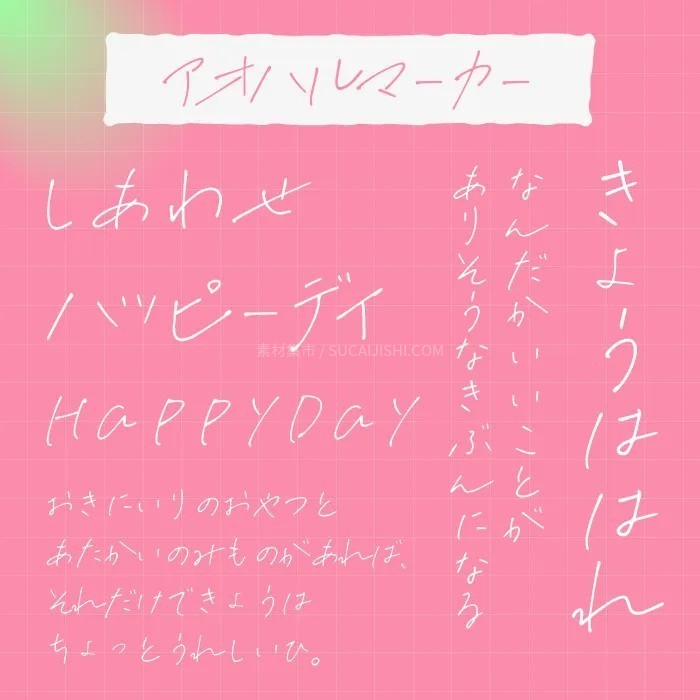 アオハルマーカー
しあわせ
ハッピーデイ
HaPPYDaY
おきにいりのおやつと
あたかいのみものがあれば、
それだけできょうは
ちょっとうれしいひ。
きょうははれ
なんだかいいことが
ありそうなきぶんになる
素材集市 / SUCAIJISHI.COM